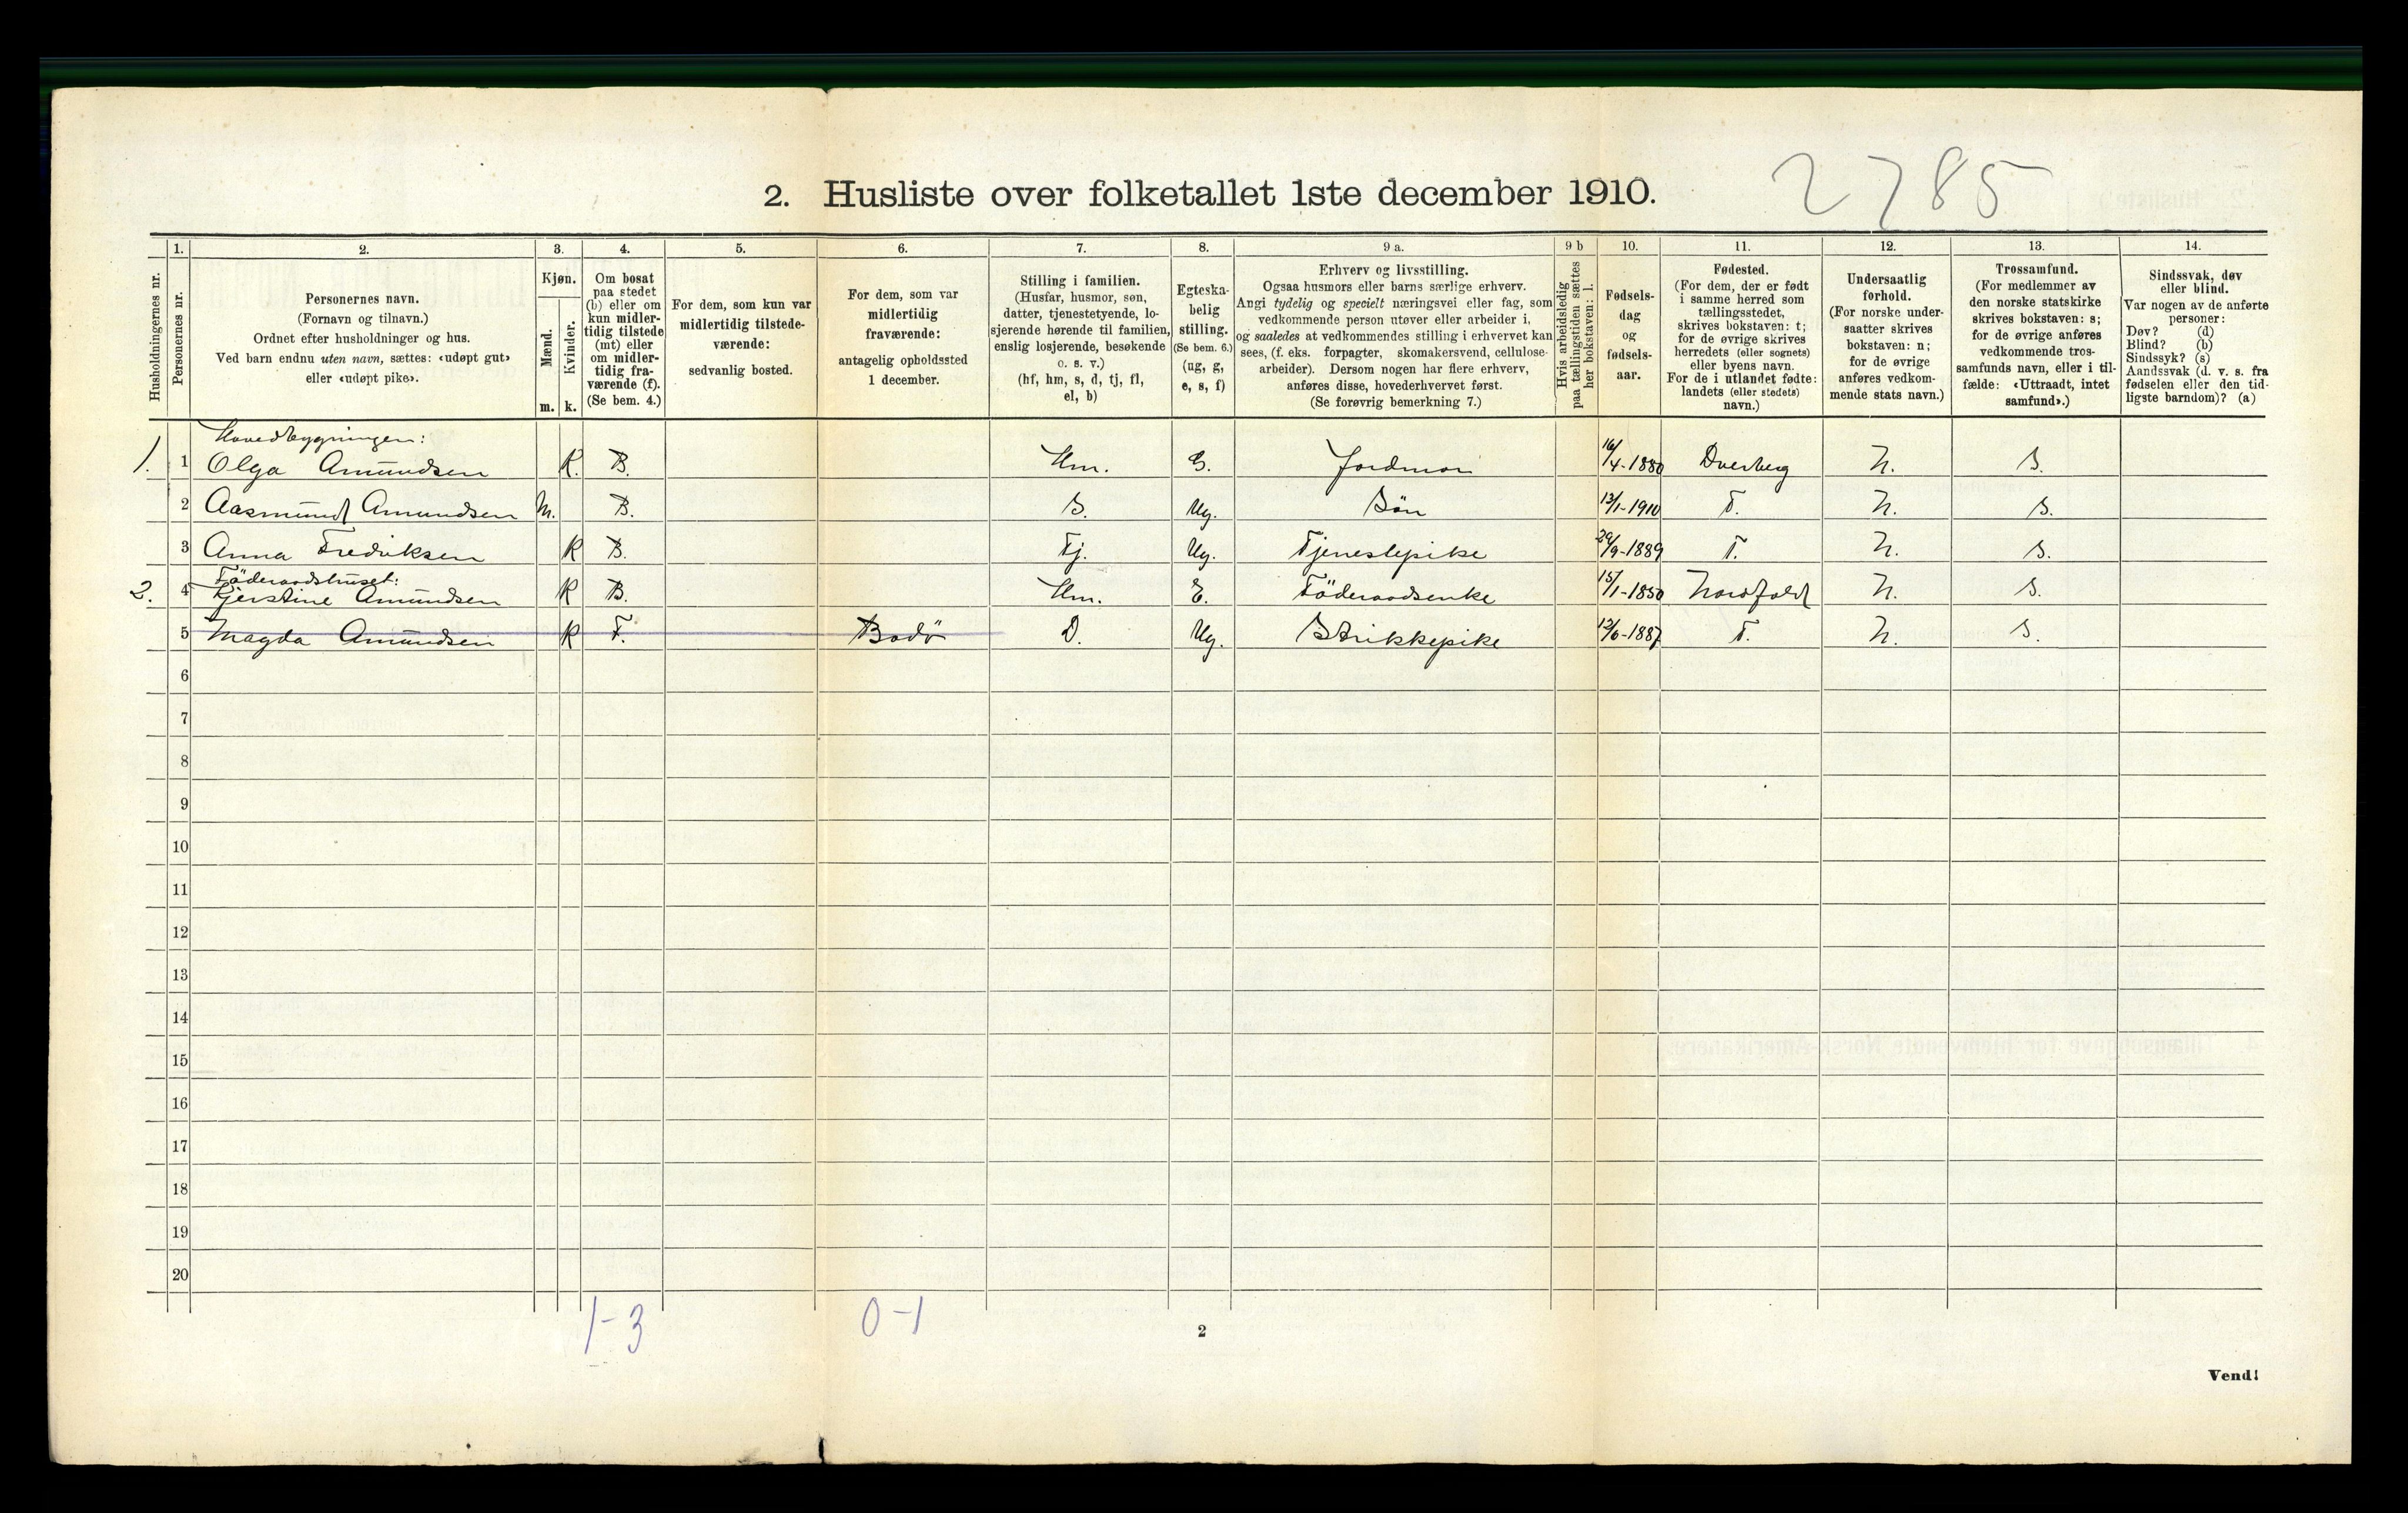 2785
2. Husliste over folketallet 1ste december 1910.
Husholdningernes nr.
1. Personernes nr.
2. Personernes navn.
(Fornavn og tilnavn.)
Ordnet efter husholdninger og hus.
Ved barn endnu uten navn, sættes: «udøpt gut»
eller «udøpt pike».
3. Kjøn.
Mænd. m.
Kvinder. k.
4. Om bosat
paa stedet
(b) eller om
kun midler-
tidig tilstede
(mt) eller
om midler-
tidig fra-
værende (f).
(Se bem. 4.)
5. For dem, som kun var
midlertidig tilstede-
værende:
sedvanlig bosted.
6. For dem, som var
midlertidig
fraværende:
antagelig opholdssted
1 december.
7. Stilling i familien.
(Husfar, husmor, søn,
datter, tjenestetyende, lo-
sjerende hørende til familien,
enslig losjerende, besøkende
o. s. v.)
(hf, hm, s, d, tj, fl,
el, b)
8. Egteska-
belig
stilling.
(Se bem. 6.)
(ug, g,
e, s, f)
9 a. Erhverv og livsstilling.
Ogsaa husmors eller barns særlige erhverv.
Angi tydelig og specielt næringsvei eller fag, som
vedkommende person utøver eller arbeider i,
og saaledes at vedkommendes stilling i erhvervet kan
sees, (f. eks. forpagter, skomakersvend, cellulose-
arbeider). Dersom nogen har flere erhverv,
anføres disse, hovederhvervet først.
(Se forøvrig bemerkning 7.)
9 b Hvis arbeidsledig
paa tællingstiden sættes
her bokstaven: l.
10. Fødsels-
dag
og
fødsels-
aar.
11. Fødested.
(For dem, der er født
i samme herred som
tællingsstedet,
skrives bokstaven: t;
for de øvrige skrives
herredets (eller sognets)
eller byens navn.
For de i utlandet fødte:
landets (eller stedets)
navn.)
12. Undersaatlig
forhold.
(For norske under-
saatter skrives
bokstaven: n;
for de øvrige
anføres vedkom-
mende stats navn.)
13. Trossamfund.
(For medlemmer av
den norske statskirke
skrives bokstaven: s;
for de øvrige anføres
vedkommende tros-
samfunds navn, eller i til-
fælde: «Uttraadt, intet
samfund».)
14. Sindssvak, døv
eller blind.
Var nogen av de anførte
personer:
Døv? (d)
Blind? (b)
Sindssyk? (s)
Aandssvak (d. v. s. fra
fødselen eller den tid-
ligste barndom)? (a)
Hovedbygningen:
1. 1 Olga Amundsen K. B. Hm. G. Jordmor 16/4-1880 Dverberg N. S.
2 Aasmund Amundsen M. B. S. Ug. Sön 13/1-1910 T. N. S.
3 Anna Fredriksen K B. Tj. Ug. Tjenestepike 29/9-1889 T. N. S.
Föderaadshuset:
2. 4 Kjerstine Amundsen K B. Hm. E. Föderaadsenke 15/1-1850 Nordfold N. S.
5 Magda Amundsen K F. Bodö D. Ug. Strikkepike 12/6-1887 T. N. S.
6
7
8
9
10
11
12
13
14
15
16
17
18
19
20
1-3 0-1
2
Vend!